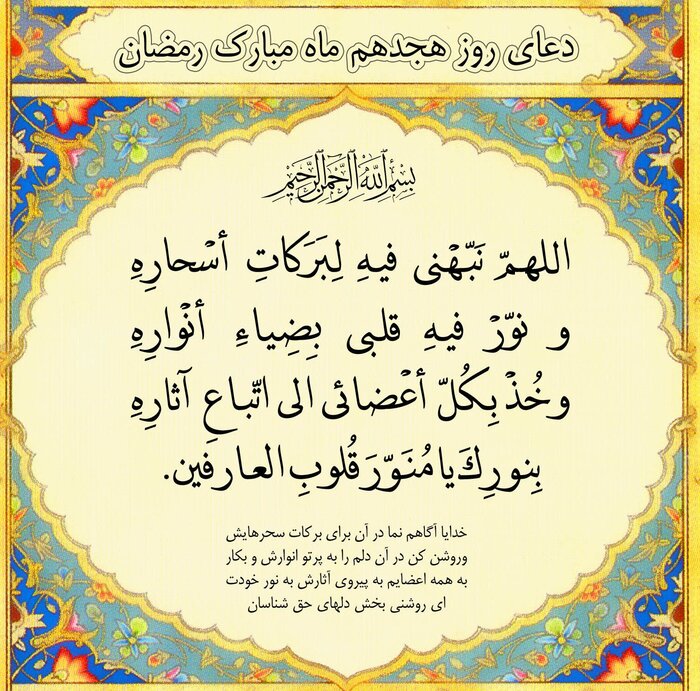 دعای روز هجدهم ماه مبارک رمضان
بِسْمِ اللَّهِ الرَّحْمَنِ الرَّحِيمِ
اللهمّ نَبّهْنی فیهِ لِبَرَکاتِ أسْحارِهِ
و نوّرْ فیهِ قلبی بِضِیاءِ أنْوارِهِ
وخُذْ بِکُلّ أعْضائی الی اتّباعِ آثارِهِ
بِنورِكَ یا مُنَوّرَ قُلوبِ العارفین.
خدایا آگاهم نما در آن برای برکات سحرهایش
وروشن کن در آن دلم را به پرتو انوارش و بکار
به همه اعضایم به پیروی آثارش به نور خودت
ای روشنی بخش دلهای حق شناسان